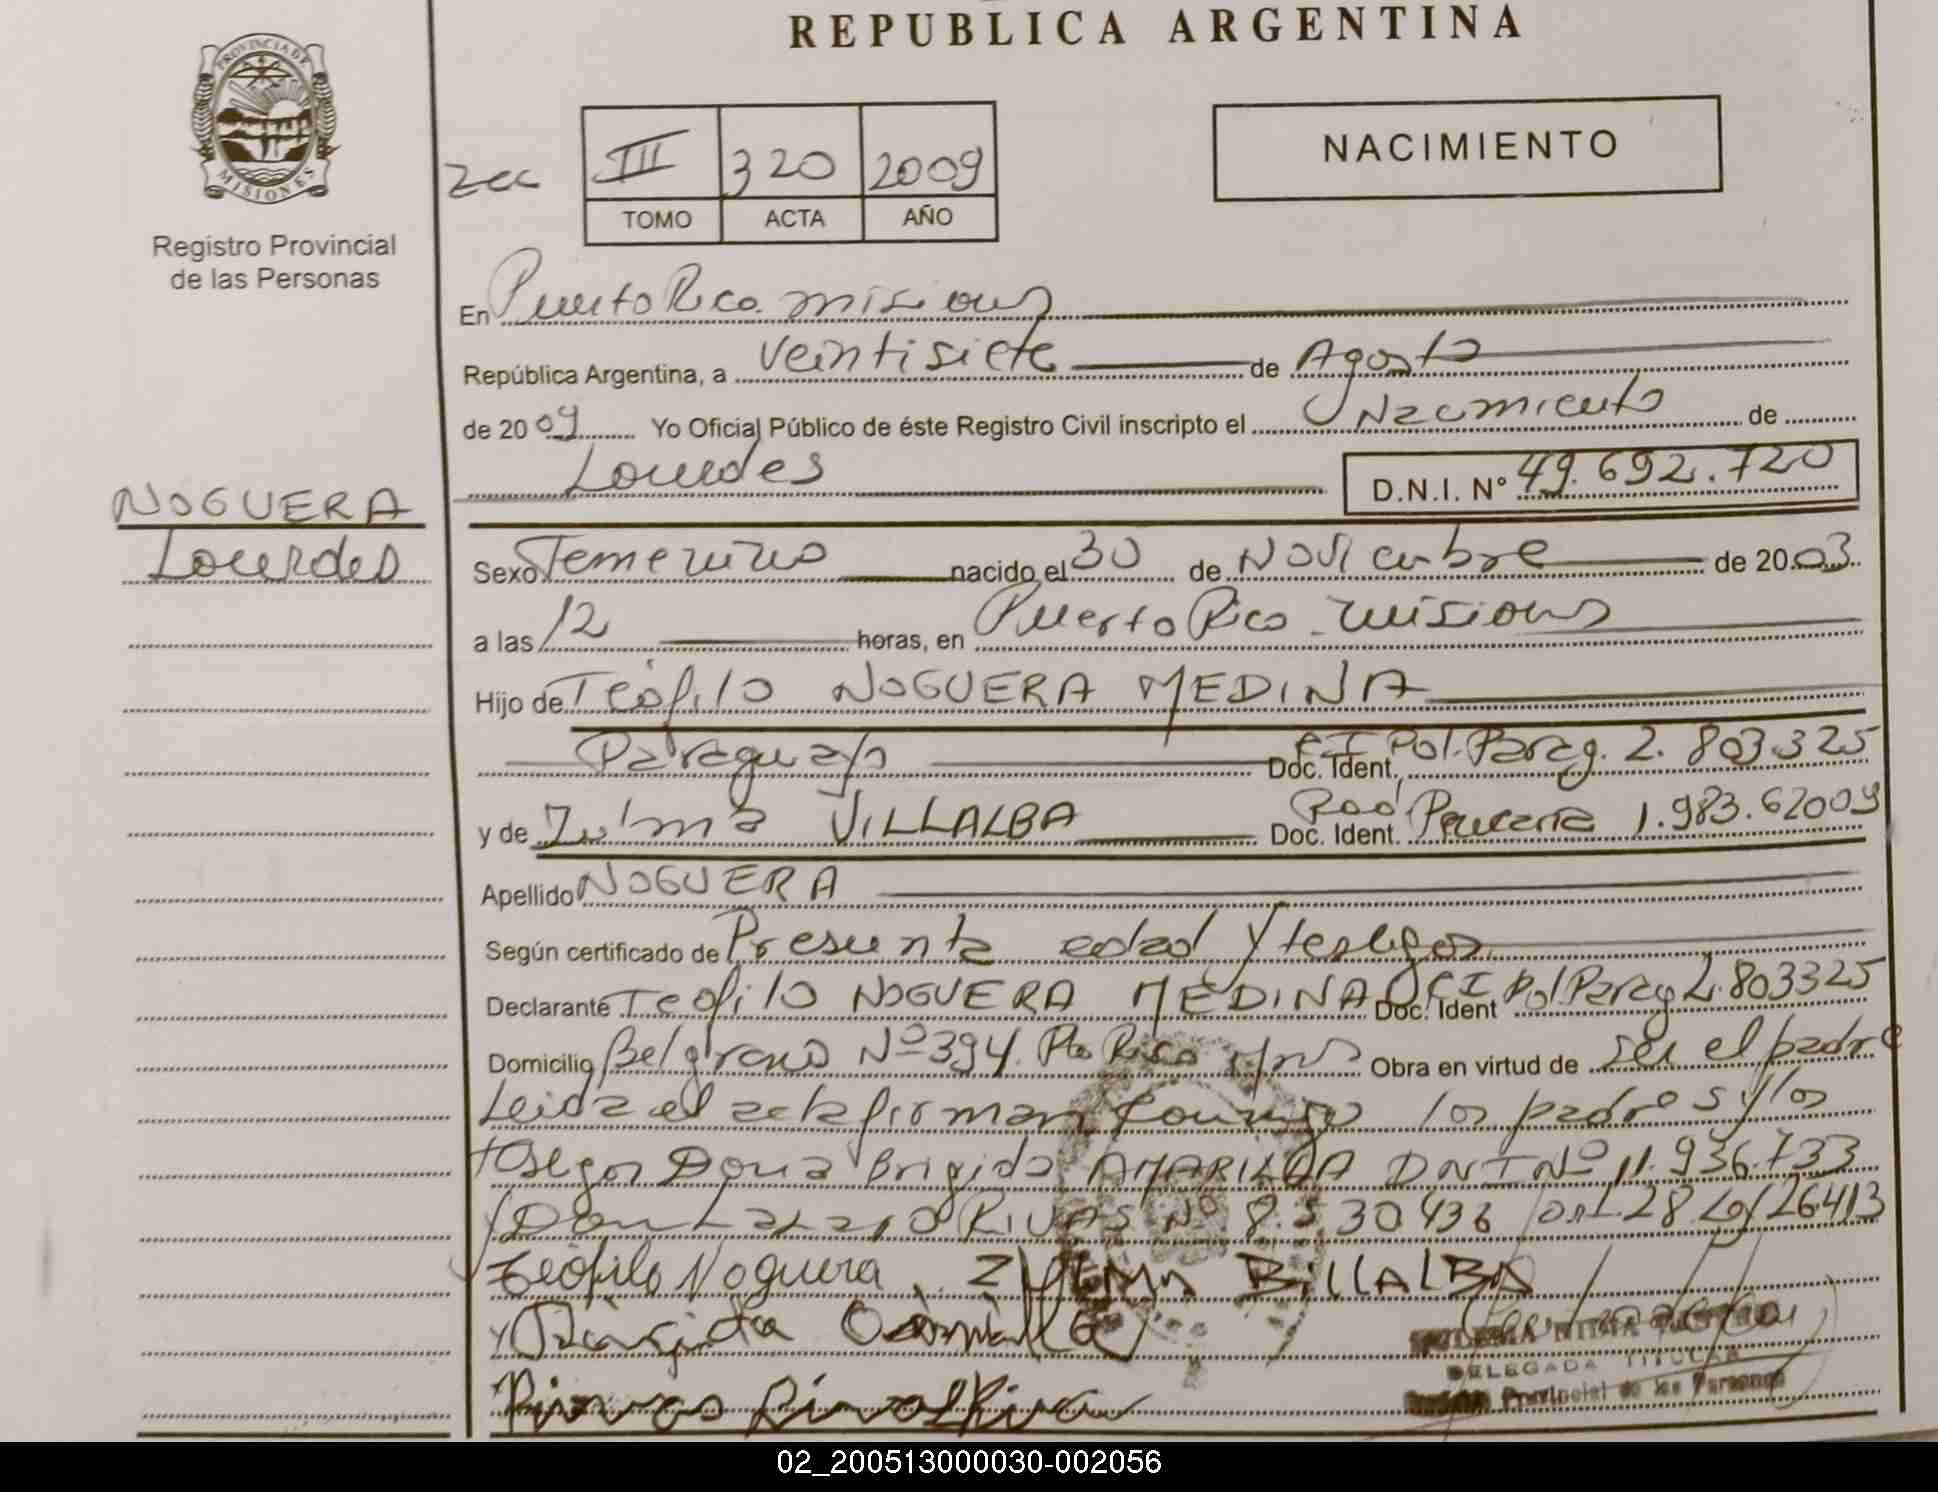 REPUBLICA ARGENTINA
PROVINCIA DE
MISIONES
Registro Provincial
de las Personas
III 320 2009
TOMO ACTA AÑO
NACIMIENTO
En Puerto Rico. misiones
República Argentina, a veintisiete de Agosto
de 2009 Yo Oficial Público de éste Registro Civil inscripto el Nacimiento de
Lourdes D.N.I. N° 49.692.720
NOGUERA
Lourdes
Sexo Femenino nacido el 30 de Noviembre de 2003
a las 12 horas, en Puerto Rico - misiones
Hijo de Teófilo NOGUERA MEDINA
Paraguayo Doc. Ident. CI Pol. Parag. 2.803.325
y de Zulma VILLALBA Doc. Ident. 1.983.62009
Apellido NOGUERA
Según certificado de Presunta edad y testigos
Declarante Teofilo NOGUERA MEDINA Doc. Ident CI Pol. Parag 2.803325
Domicilio Belgrano Nº 394. Pto Rico Mnes Obra en virtud de ser el padre
Leida el acta firman conmigo los padres y los
testigos Doña Brigida AMARILLA DNI Nº 11.936.733
y Don Lazaro RIVAS Nº 8.530436
Teófilo Noguera ZULEMA BILLALBA
DELEGADA TITULAR
Provincial de las Personas
02_200513000030-002056